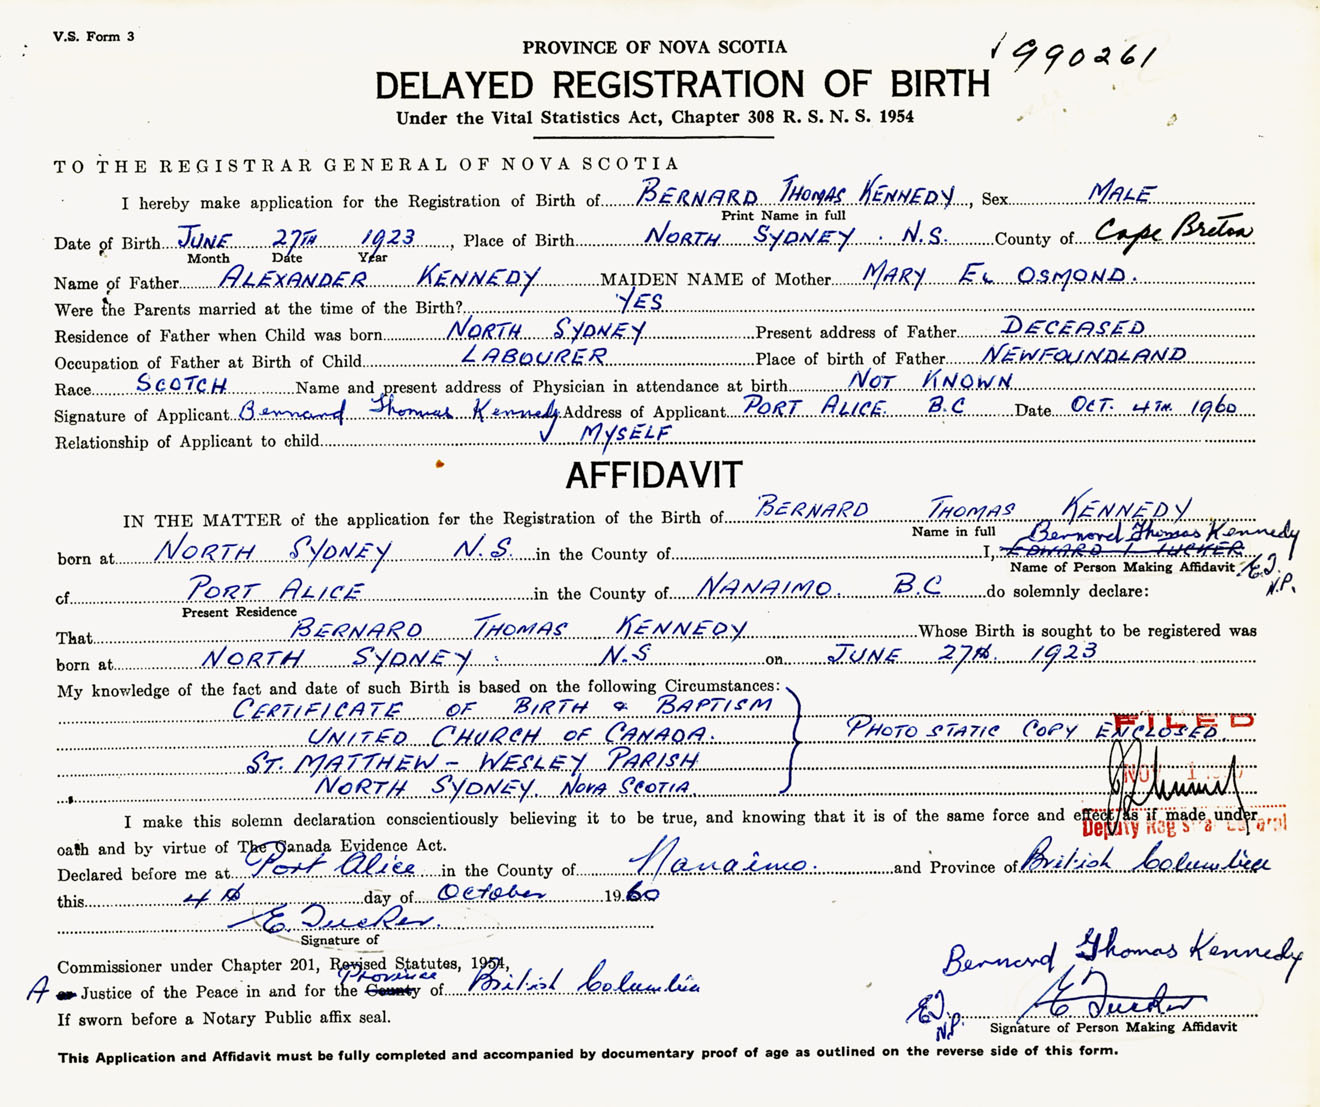 V.S. Form 3
PROVINCE OF NOVA SCOTIA
990261
DELAYED REGISTRATION OF BIRTH
Under the Vital Statistics Act, Chapter 308 R. S. N. S. 1954
TO THE REGISTRAR GENERAL OF NOVA SCOTIA
I hereby make application for the Registration of Birth of BERNARD THOMAS KENNEDY, Sex MALE
Print Name in full
Date of Birth JUNE 27TH 1923, Place of Birth NORTH SYDNEY . N.S. County of Cape Breton
Month Date Year
Name of Father ALEXANDER KENNEDY MAIDEN NAME of Mother MARY EL OSMOND.
Were the Parents married at the time of the Birth? YES
Residence of Father when Child was born NORTH SYDNEY Present address of Father DECEASED
Occupation of Father at Birth of Child LABOURER Place of birth of Father NEWFOUNDLAND
Race SCOTCH Name and present address of Physician in attendance at birth NOT KNOWN
Signature of Applicant Bernard Thomas Kennedy Address of Applicant PORT ALICE B.C Date OCT. 4TH. 1960
Relationship of Applicant to child MYSELF
AFFIDAVIT
IN THE MATTER of the application for the Registration of the Birth of BERNARD THOMAS KENNEDY
Name in full Bernard Thomas Kennedy
born at NORTH SYDNEY N.S. in the County of I, EDWARD I. TUCKER
Name of Person Making Affidavit E.T. N.P.
of PORT ALICE in the County of NANAIMO. B.C do solemnly declare:
Present Residence
That BERNARD THOMAS KENNEDY Whose Birth is sought to be registered was
born at NORTH SYDNEY : N.S on JUNE 27th. 1923
My knowledge of the fact and date of such Birth is based on the following Circumstances:
CERTIFICATE OF BIRTH & BAPTISM
FILED
UNITED CHURCH OF CANADA. PHOTOSTATIC COPY ENCLOSED.
ST. MATTHEW - WESLEY PARISH
NORTH SYDNEY. NOVA SCOTIA
I make this solemn declaration conscientiously believing it to be true, and knowing that it is of the same force and effect as if made under
Deputy Registrar General
oath and by virtue of The Canada Evidence Act.
Declared before me at Port Alice in the County of Nanaimo. and Province of British Columbia
this 4th day of October 1960
E. Tucker.
Signature of
Commissioner under Chapter 201, Revised Statutes, 1954,
Bernard Thomas Kennedy
A or Justice of the Peace in and for the County Province of British Columbia
E.T. N.P. E Tucker
If sworn before a Notary Public affix seal.
Signature of Person Making Affidavit
This Application and Affidavit must be fully completed and accompanied by documentary proof of age as outlined on the reverse side of this form.